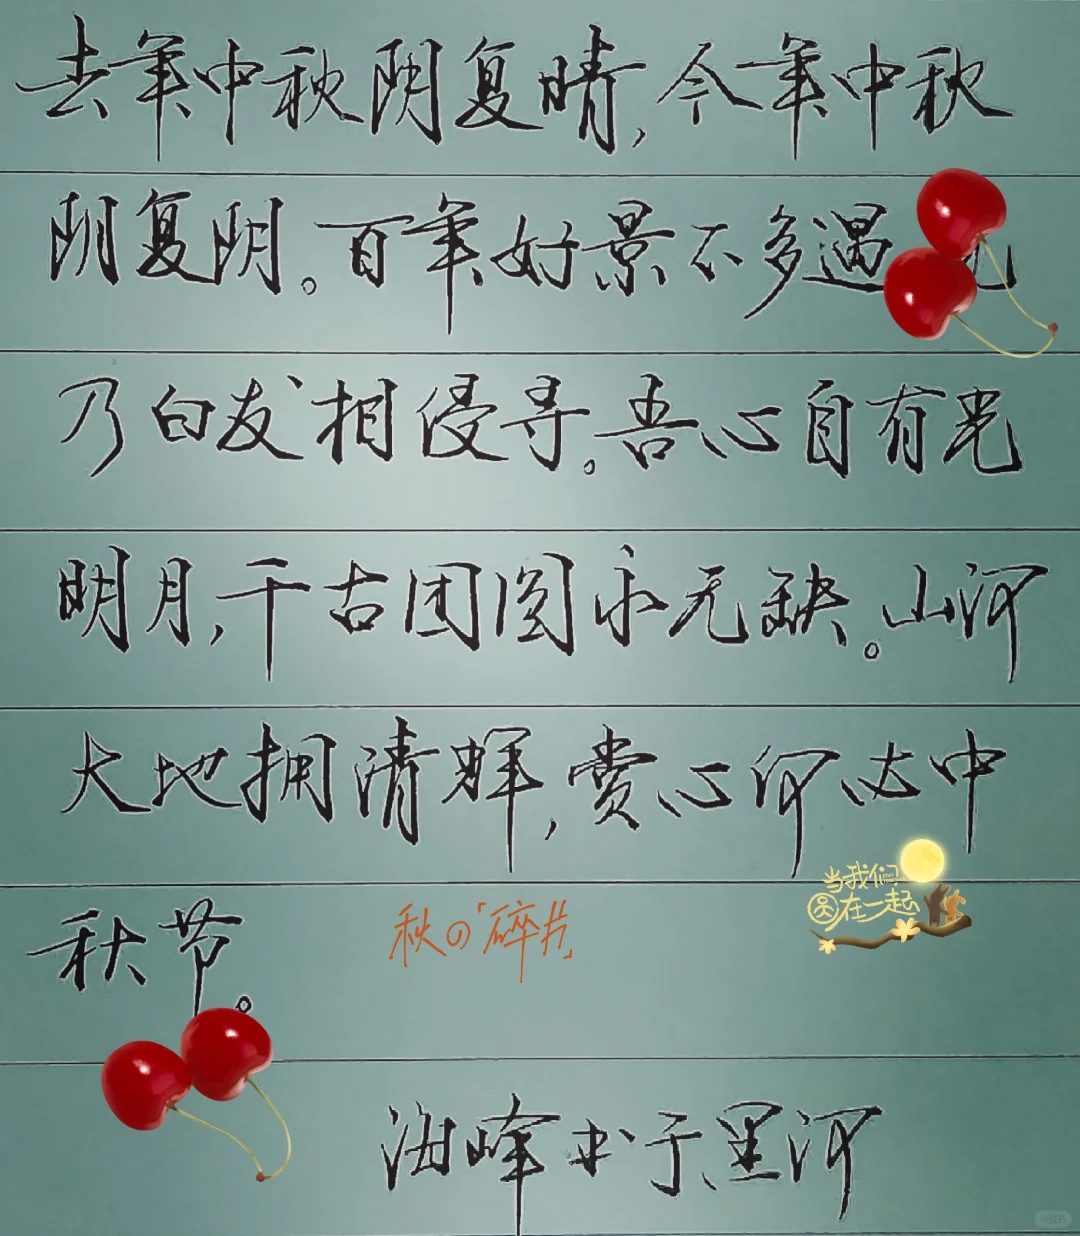 去年中秋阴复晴,今年中秋
阴复阴。百年好景不多遇
乃白发相侵寻。吾心自有光
明月,千古团圆永无缺。山河
大地拥清辉,赏心何必中
秋节。
当我们
圆在一起
秋の「碎片」
海峰书于黑河